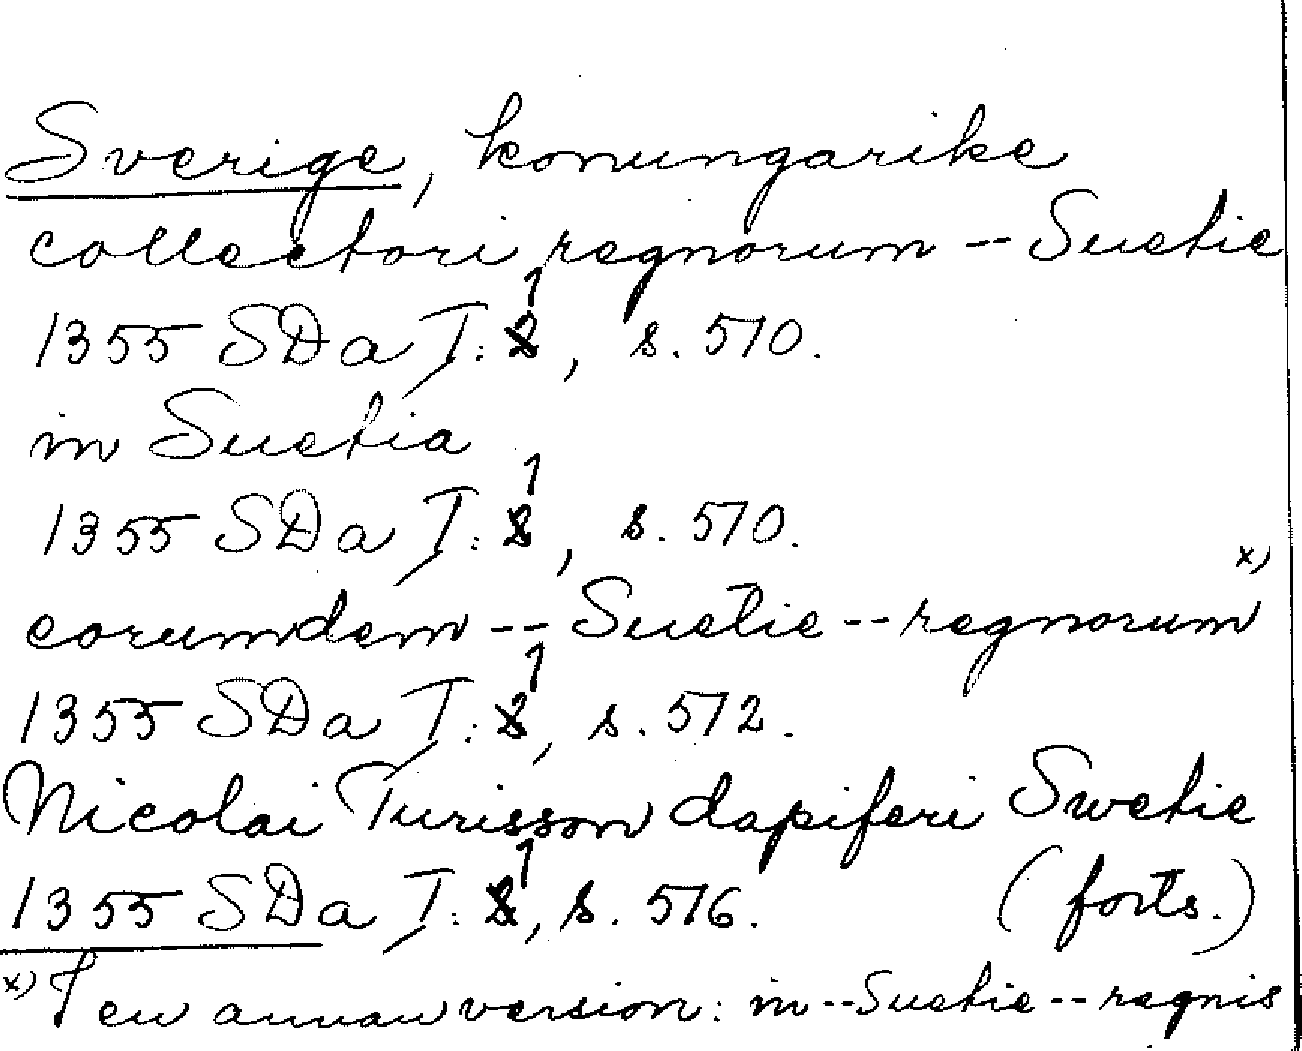 Sverige, konungarike
collectori regnorum -- Suetie
1355 SDa I:1, s. 570.
in Suetia
1355 SDa I:1, s. 570.
eorumdem -- Suetie -- regnorum x)
1355 SDa I:1, s. 572.
Nicolai Turisson dapiferi Swetie
1355 SDa I:1, s. 576. (forts.)
x) I en annan version: in -- Suetie -- regnis